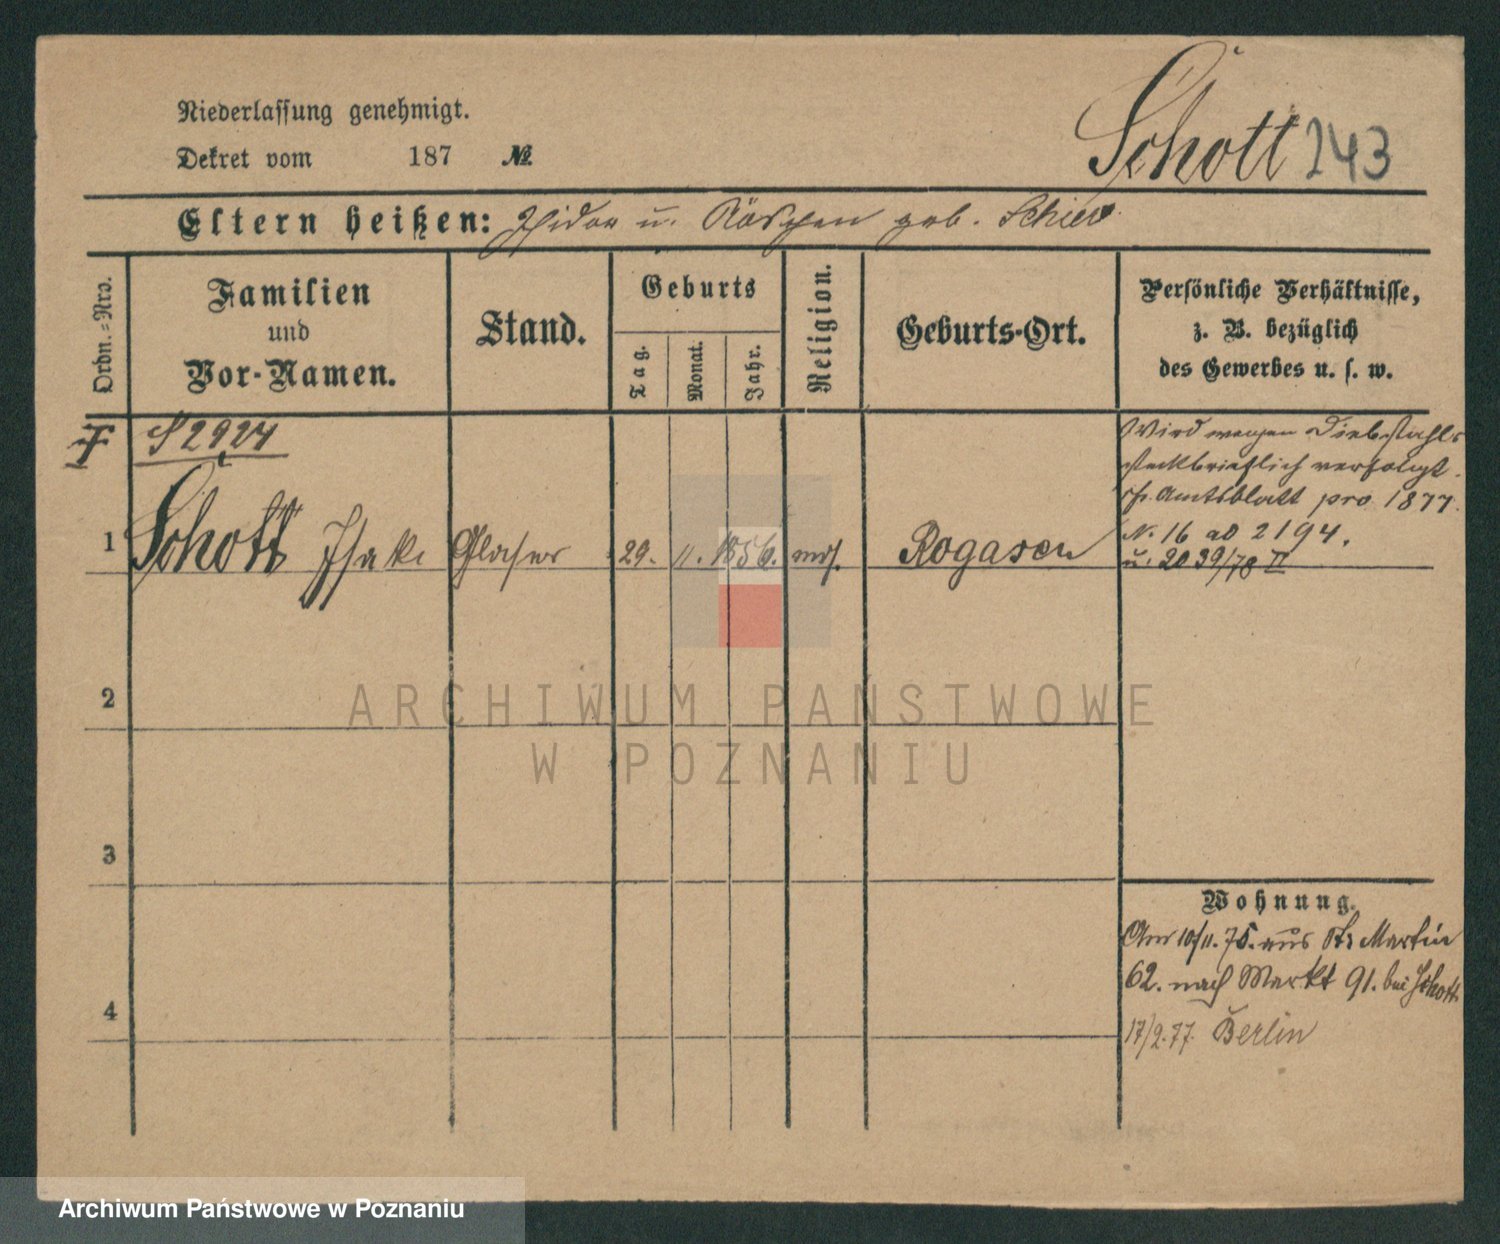 Niederlassung genehmigt.
Dekret vom 187 №
Schott 243
Eltern heißen: Isidor u. Röschen geb. Schier
Ordn.-Nro.
Familien
und
Vor-Namen.
Stand.
Geburts
Tag.
Monat.
Jahr.
Religion.
Geburts-Ort.
Persönliche Verhältnisse,
z. B. bezüglich
des Gewerbes u. s. w.
S 2924
Wird wegen Diebstahls
steckbrieflich verfolgt.
Amtsblatt pro 1877.
N. 16 ad 2194.
u. 2039/78 II
1 Schott Isak Glaser 29. 11. 1856. mos. Rogasen
2
3
4
Wohnung.
Am 10/11. 75. aus St. Martin
62. nach Markt 91. bei Schott
17/2.77. Berlin
ARCHIWUM PAŃSTWOWE
W POZNANIU
Archiwum Państwowe w Poznaniu